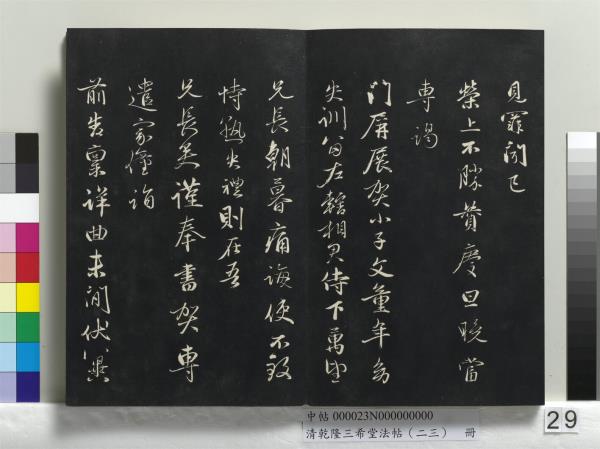 見寵聞已
榮上不勝贊慶旦晚當
專謁
門屏展賀小子文童年幼
失訓向在轄相君侍下萬望
兄長朝暮痛誨使不致
恃熟失禮則在吾
兄長矣謹奉書賀專
遣家僮詣
前告稟詳曲未間伏冀
中帖 000023N000000000
清乾隆三希堂法帖（二三） 冊
29